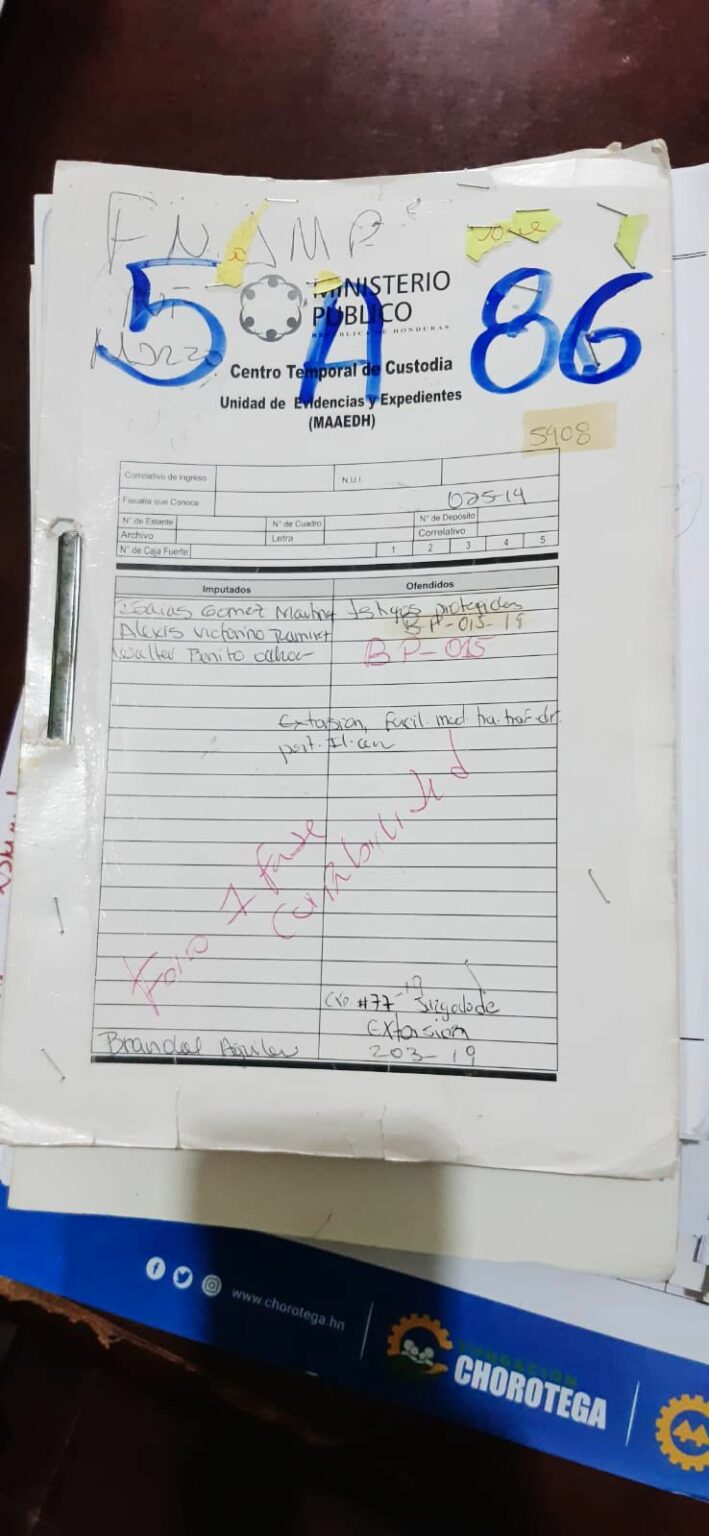 FNAMP
5 A 86
MINISTERIO
PÚBLICO
REPUBLICA DE HONDURAS
Centro Temporal de Custodia
Unidad de Evidencias y Expedientes
(MAAEDH)
5908
Correlativo de Ingreso
N.U.I.
Fiscalia que Conoce
025-19
N° de Estante
N° de Cuadro
N° de Depósito
Archivo
Letra
Correlativo
N° de Caja Fuerte
1 2 3 4 5
Imputados
Ofendidos
Isaias Gomez Martinez
Testigos protegidos
Alexis Victorino Ramirez
BP-015-19
Walter Benito
BP-015
Extorsion, Facil. med.
Foro 7 fase
Culpabilidad
Exp #77-19 Juzgado de
Extorsion
203-19
www.chorotega.hn
FUNDACIÓN
CHOROTEGA